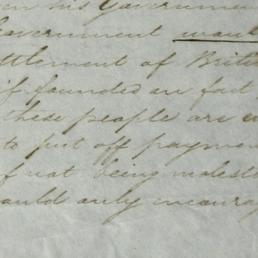 his Government
Government
ttlement of Brit
if founded on fact
these people are
to put off paymen
f not being molest
ould only encourag